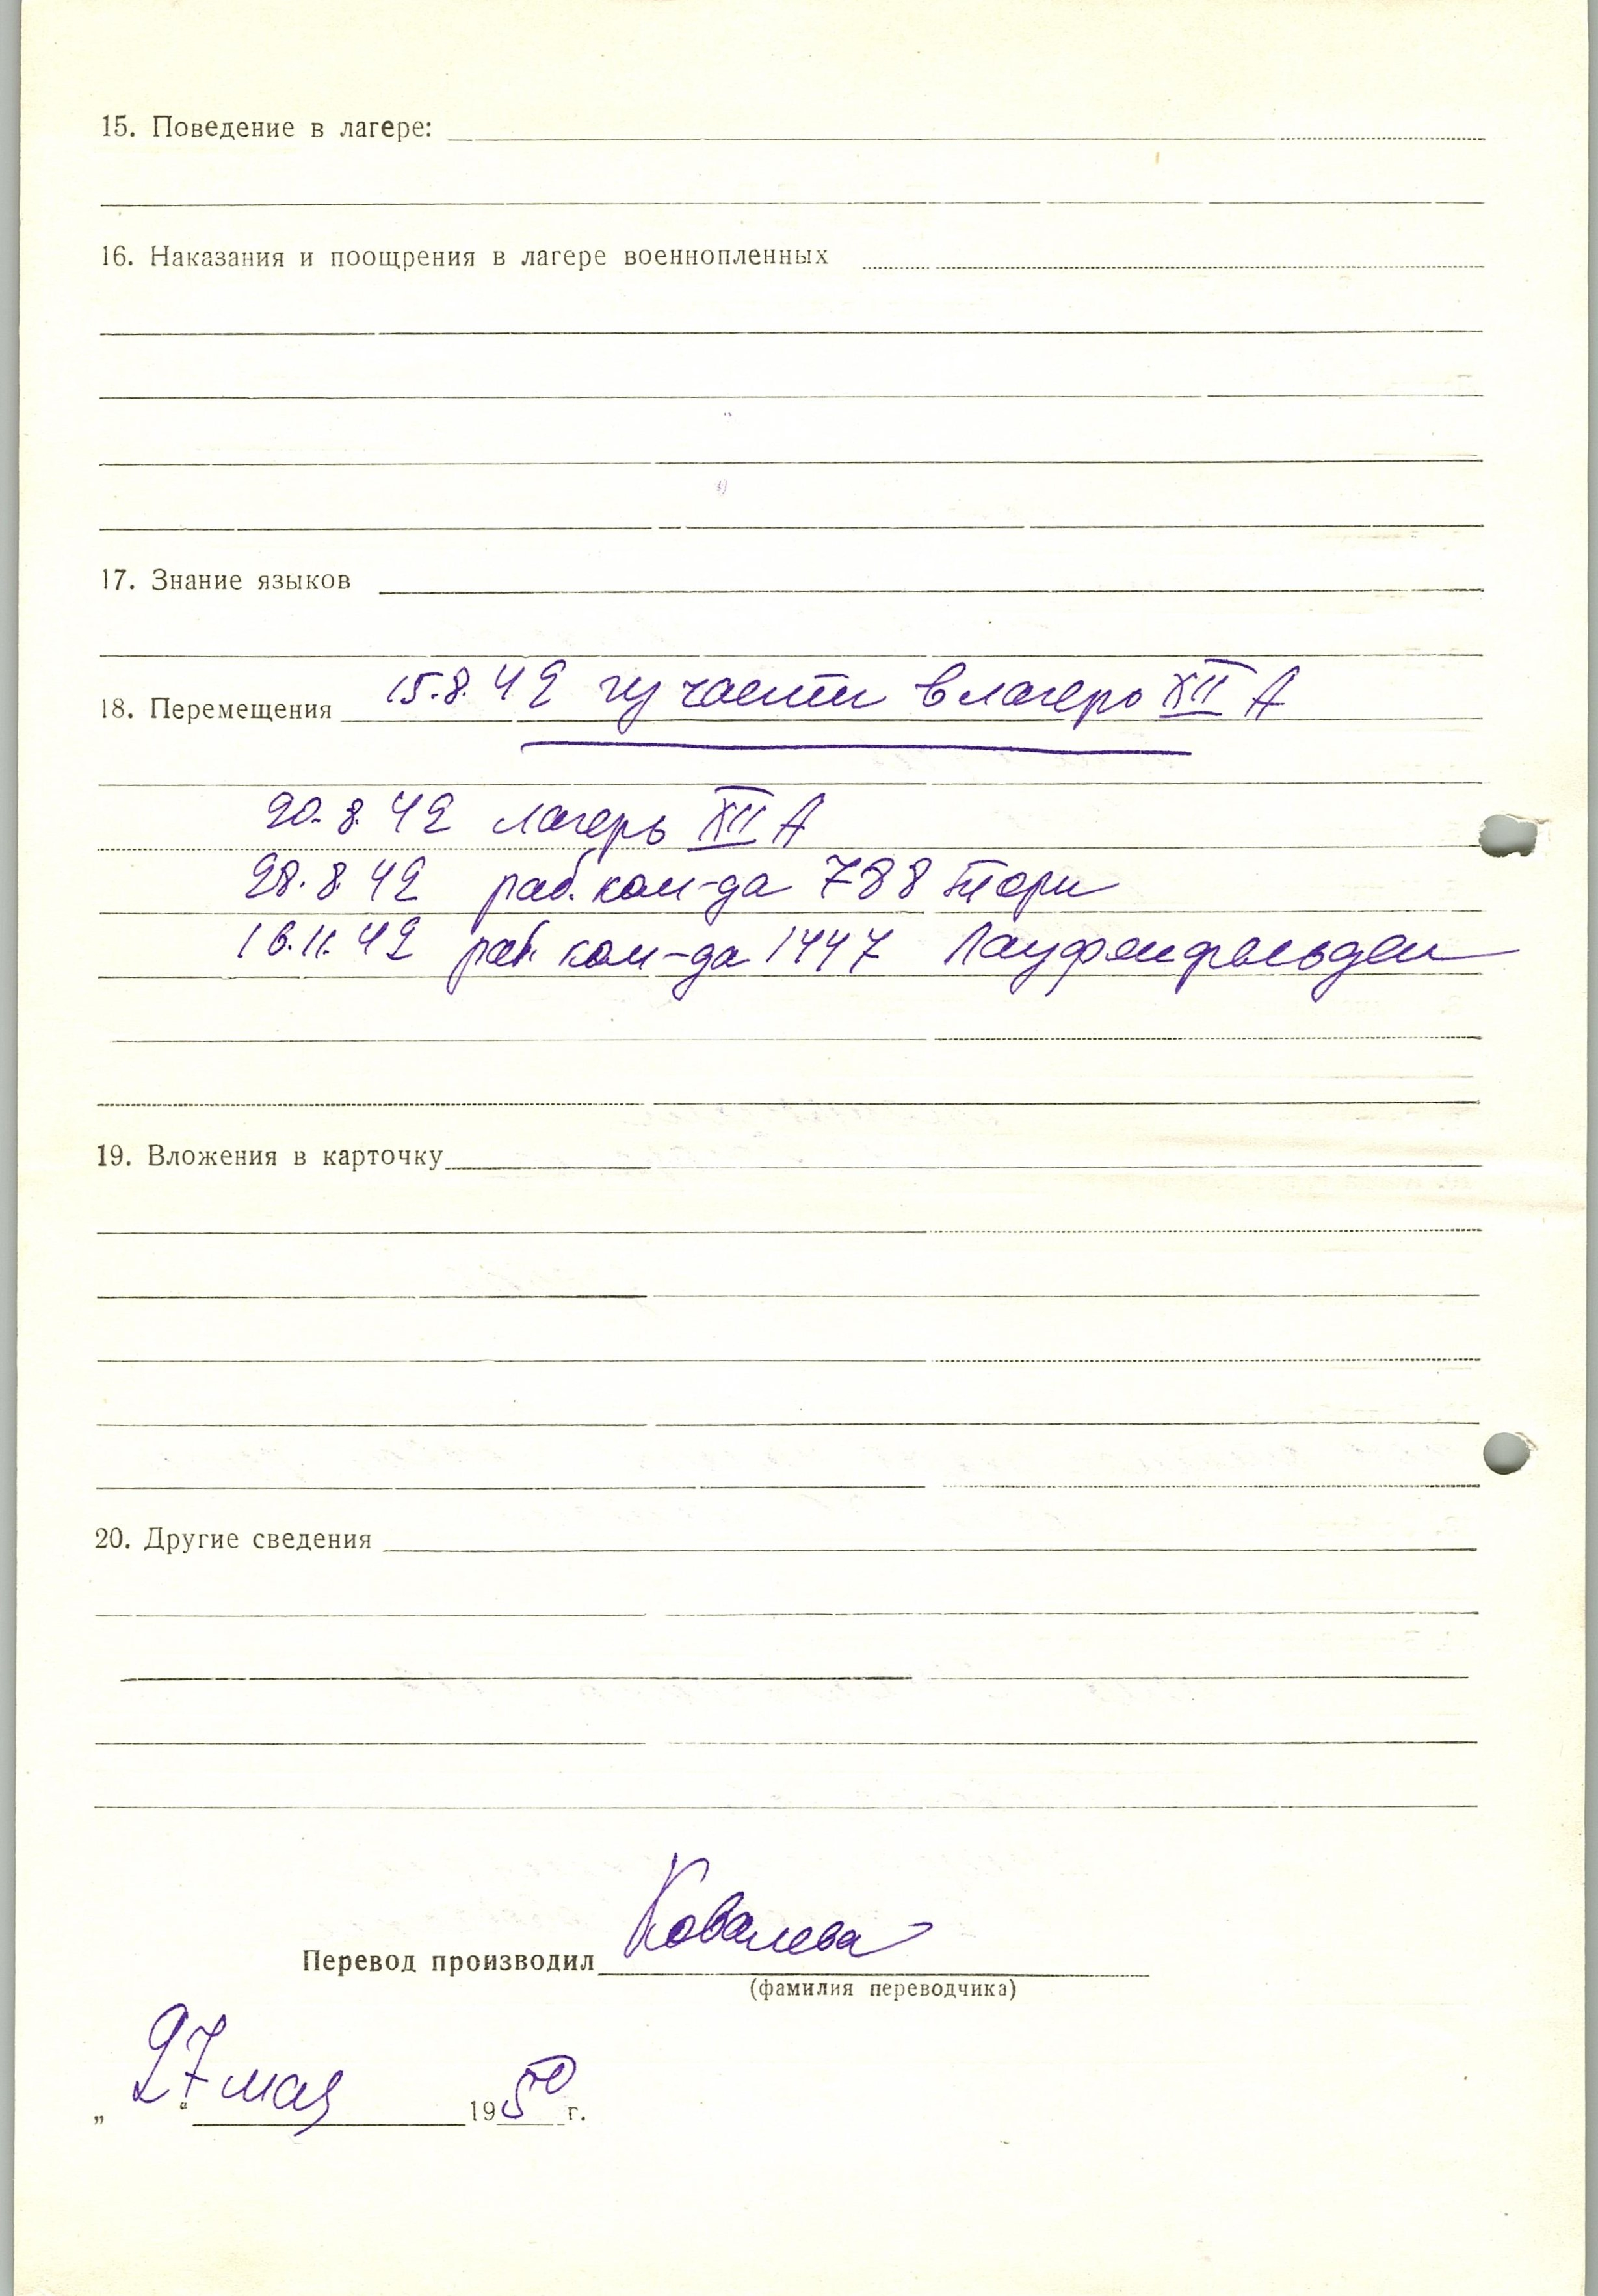 15. Поведение в лагере:
16. Наказания и поощрения в лагере военнопленных
17. Знание языков
18. Перемещения 15.8.42 из части в лагерь XII А
20.8.42 лагерь XII А
28.8.42 раб. ком-да 788
16.11.42 раб. ком-да 1447 Лауфенфельден
19. Вложения в карточку
20. Другие сведения
Перевод производил Ковалева
(фамилия переводчика)
„27“ мая 1950 г.